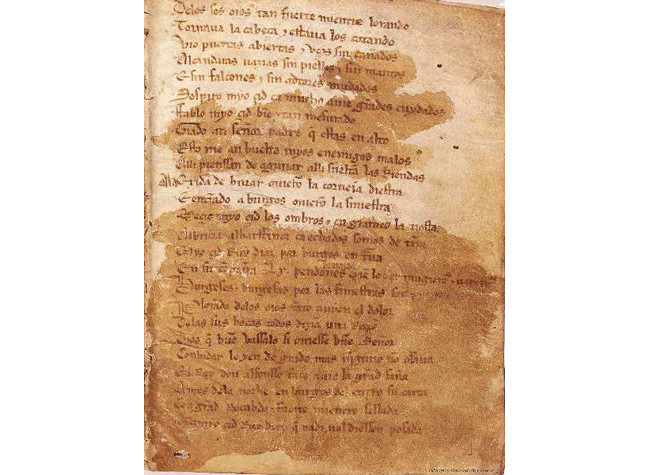 Delos sos oios tan fuerte mientre lorando
Tornava la cabeça ⁊ estava los catando
Vio puertas abiertas ⁊ vços sin cañados
Alcandaras uazias sin pielles ⁊ sin mantos
E sin falcones ⁊ sin adtores mudados
Sospiro myo çid ca mucho auie grãdes cuydados
Fablo myo çid bien ⁊ tan mesurado
Grado a ti señor padre q̃ estas en alto
Esto me an buelto myos enemigos malos
Alli pienssan de aguijar alli sueltã las Riendas
Ala Exida de biuar ouierõ la corneia diestra
E entrãdo a burgos ouierõ la siniestra
Meçio myo çid los ombros ⁊ en grameo la tiesta
Albricia albarffanez ca echados somos de tr̃ra
Myo çid Ruy diaz por burgos en traua
En su cõpaña .Lx. pendones
Burgeses ⁊ burgesas por las finiestras son
Plorando delos oios tãto auien el dolor
Delas sus bocas todos dizian una Razo
Dios q̃ buẽ vassalo si ouiesse buẽ Señor
Conbidar le yen de grado mas ninguno no osaua
El Rey don alfonsso tãto auie la grãd saña
Antes dela noche en burgos del entro su carta
Con grãd Recabdo ⁊ fuerte mientre sellada
Que a myo çid Ruy diaz q̃ nadi nol diessen posada